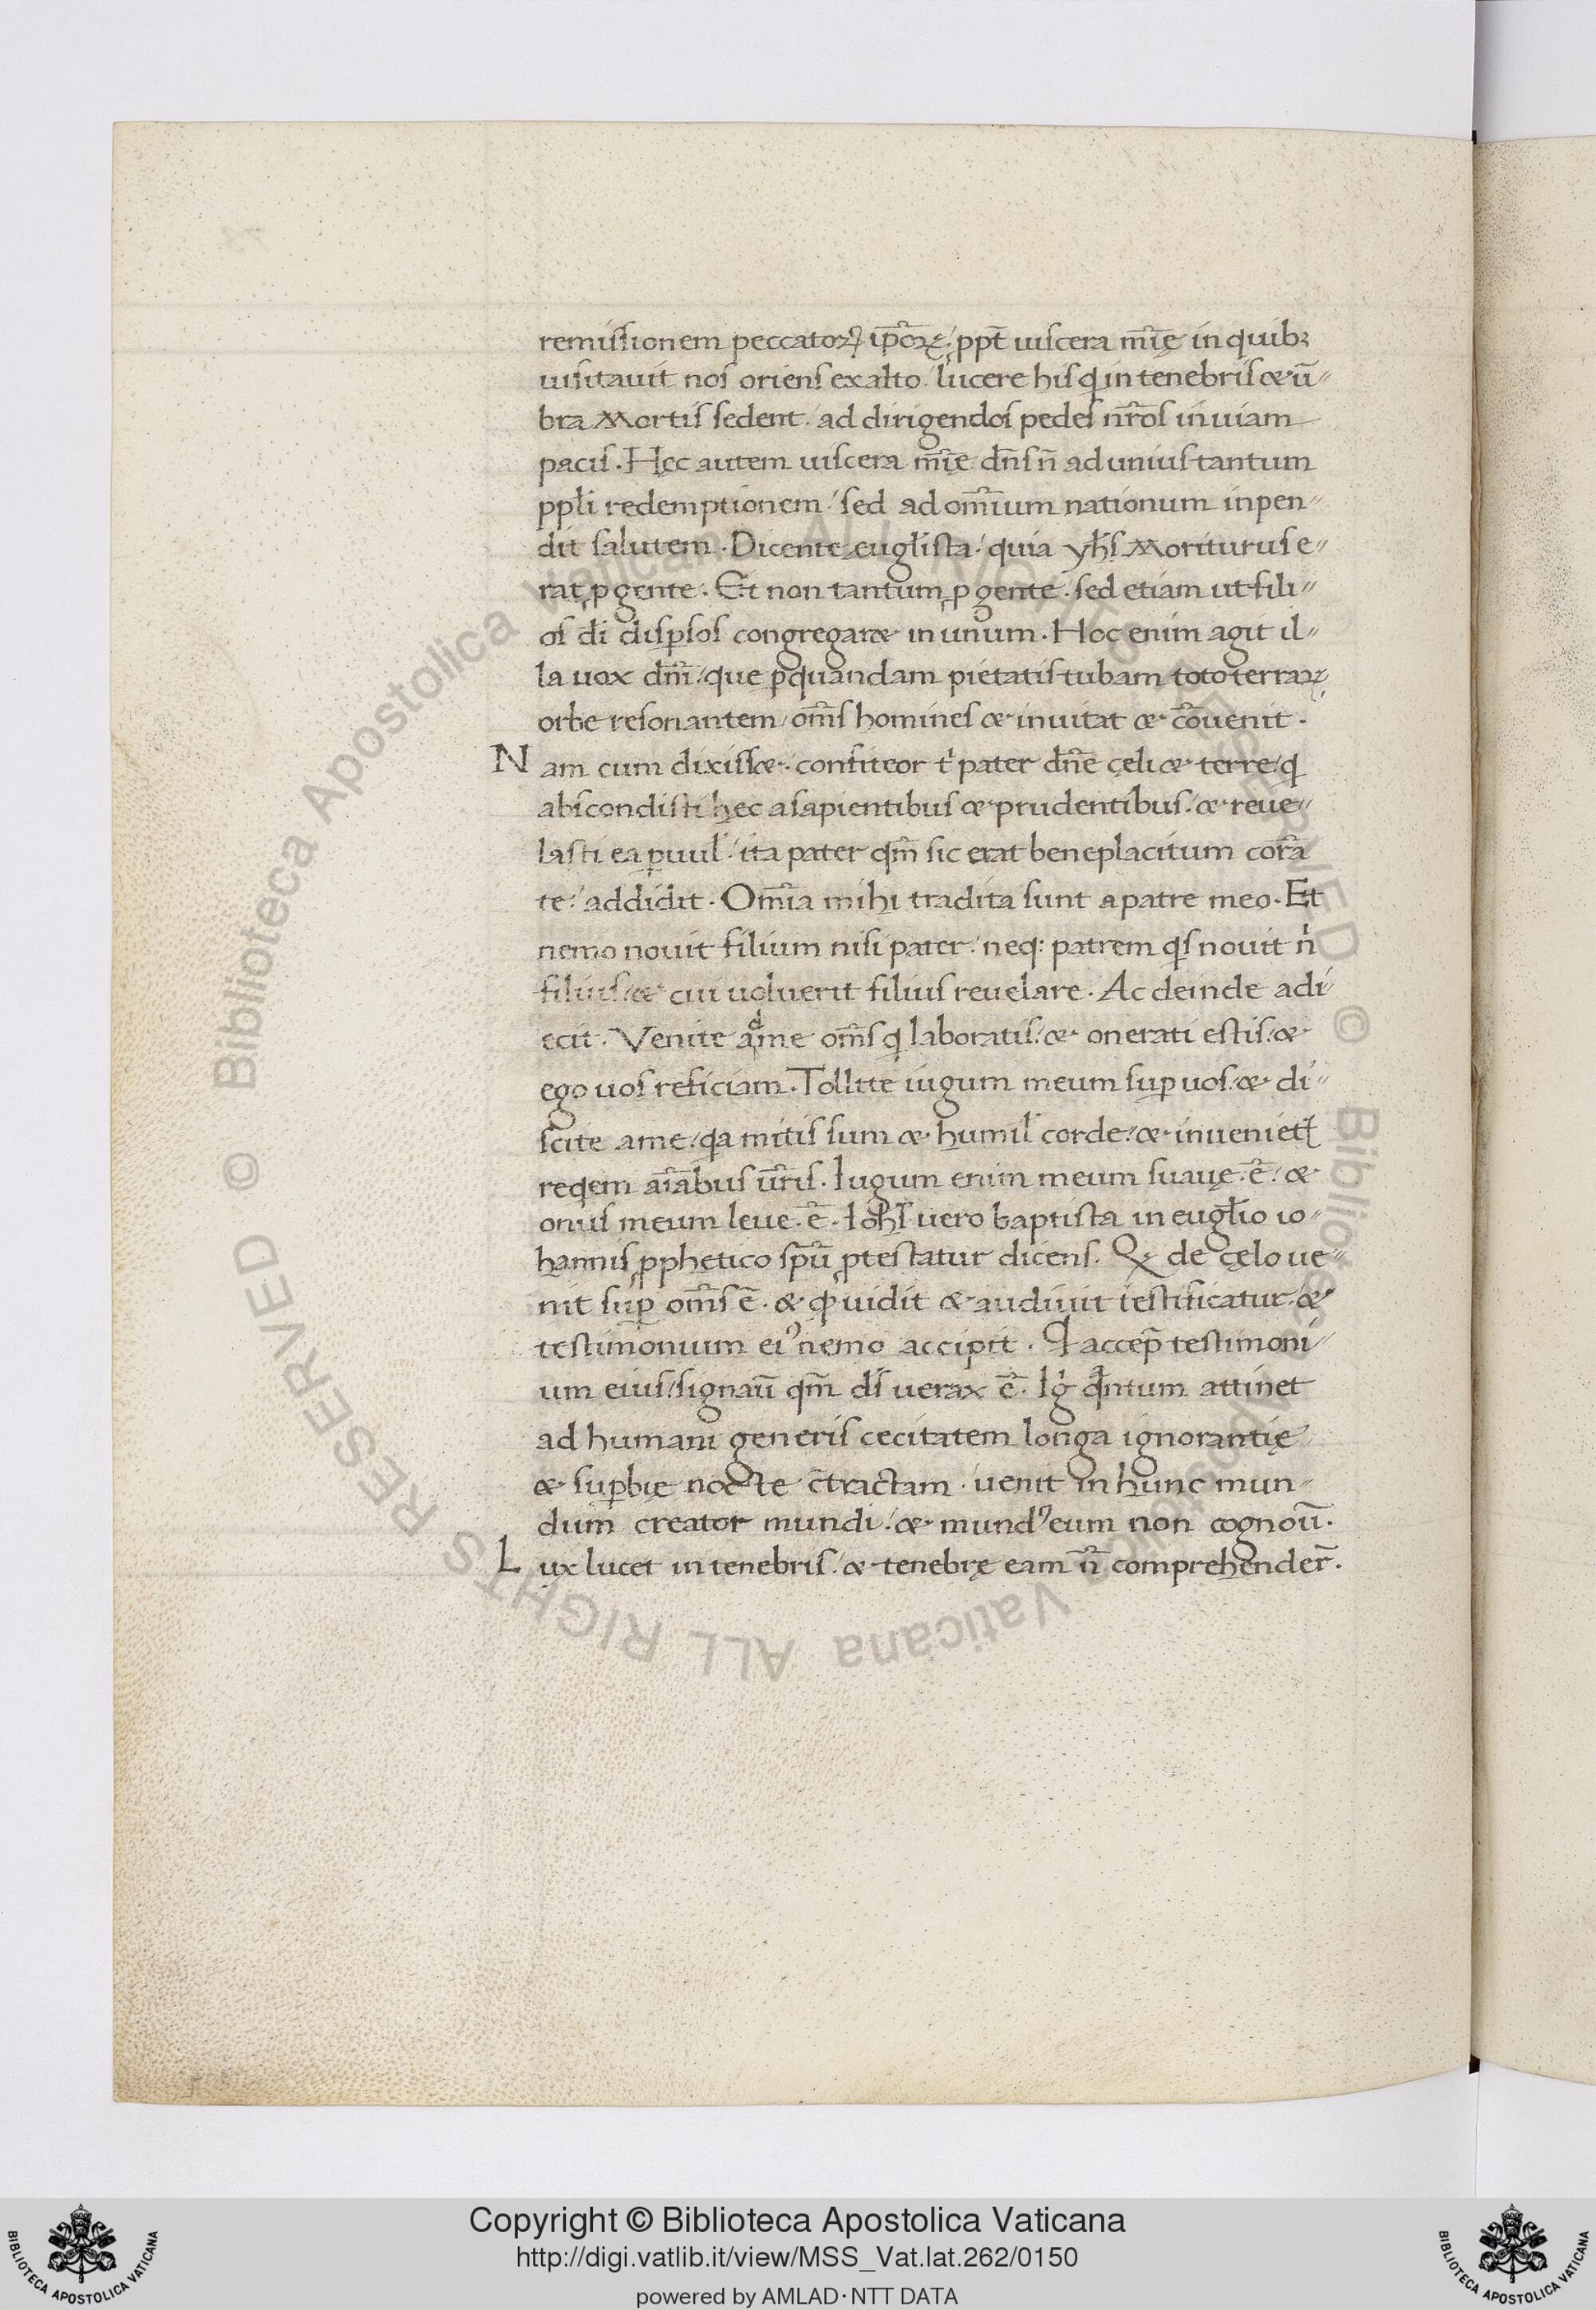 remissionem peccatoꝝ ip̄oꝝ/ ꝓpt̄ uiscera mīe in quibꝫ
uisitauit nos oriens ex alto/ lucere his qͥ in tenebris & ū〃
bra Mortis sedent/ ad dirigendos pedes nr̄os in uiam
pacis. Hęc autem uiscera mīę dn̄s n̄ ad unius tantum
ppl̄i redemptionem/ sed ad om̄ium nationum inpen〃
dit salutem. Dicente eugl̄ista/ quia yhs̄ Moriturus e〃
rat ꝓ gente. Et non tantum ꝓ gente. sed etiam ut fili〃
os dī disꝑsos congregar& in unum. Hoc enim agit il〃
la uox dn̄i/ que ꝑ quandam pietatis tubam toto terraꝝ
orbe resonantem/ om̄s homines & inuitat & cōuenit.
Nam cum dixiss&. confiteor tͥ pater dn̄e cęli & terre/ qͥ
abscondisti hęc a sapientibus & prudentibus/ & reue〃
lasti ea ꝑuul̄/ ita pater qm̄ sic erat beneplacitum corā
te/ addidit. Om̄ia mihi tradita sunt a patre meo. Et
nemo nouit filium nisi pater/ neqꝫ patrem qͥs nouit nͥ
filius/ & cui uoluerit filius reuelare. Ac deinde adi〃
ecit. Venite adme om̄s qͥ laboratis/ & onerati estis/ &
ego uos reficiam. Tollite iugum meum suꝑ uos/ & di〃
scite ame/ qͣa mitis sum & humil̄ corde/ & inuenietꝭ
reqͥem aīabus ur̄is. Iugum enim meum suauę. ē/ &
onus meum leue. ē. Ioh̄s uero baptista in eugl̄io io〃
hannis ꝓphetico sp̄ū ꝓtestatur dicens. Qͥ de cęlo ue〃
nit suꝑ om̄s ē. & qͩ uidit & audiuit testificatur/ &
testimonium eiꝰ nemo accipit. Qͥ accep̄ testimoni〃
um eius/ signaū qm̄ ds̄ uerax ē. Igͥ qͣntum attinet
ad humani generis cecitatem longa ignorantię
& suꝑbię nocte c̄tractam. uenit in hunc mun〃
dum creator mundi/ & mundꝰ eum non cognoū.
Lux lucet in tenebris/ & tenebrę eam n̄ comprehender̄.
Copyright © Biblioteca Apostolica Vaticana
http://digi.vatlib.it/view/MSS_Vat.lat.262/0150
powered by AMLAD·NTT DATA
BIBLIOTECA APOSTOLICA VATICANA
BIBLIOTECA APOSTOLICA VATICANA
© Biblioteca Apostolica Vaticana ALL RIGHTS RESERVED © Biblioteca Apostolica Vaticana ALL RIGHTS RESERVED